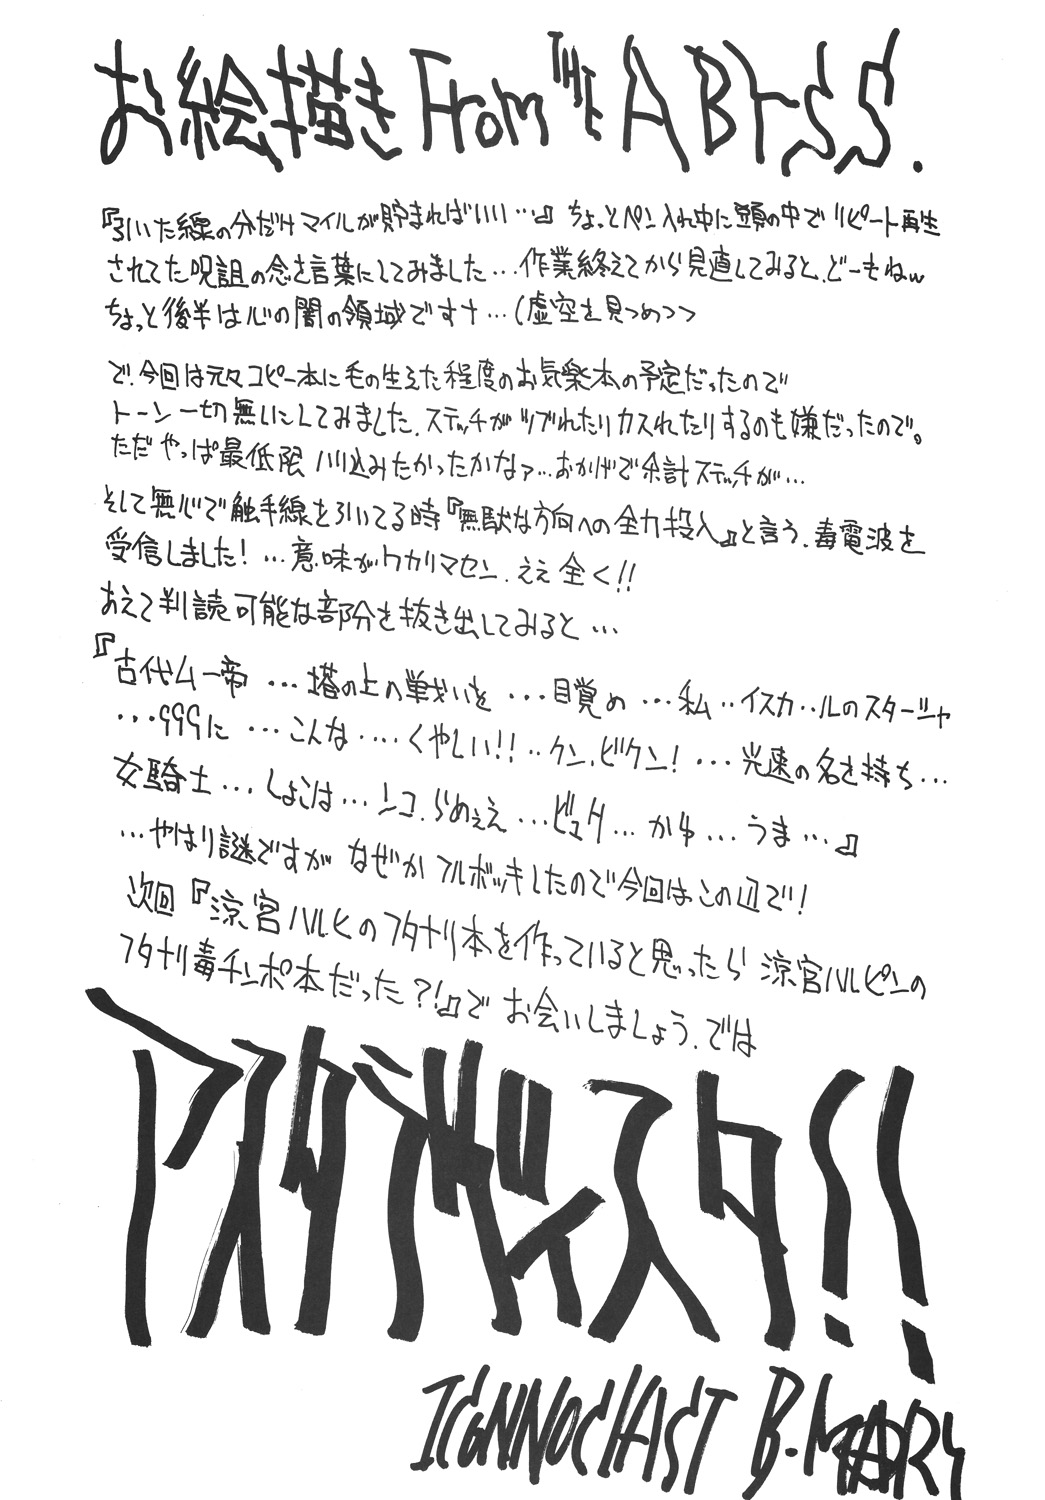 お絵描き From THE ABYSS.
『引いた線の分だけマイルが貯まればいい…』ちょっとペン入れ中に頭の中でリピート再生
されてた呪詛の念を言葉にしてみました…作業終えてから見直してみると、どーもねw
ちょっと後半は心の闇の領域ですナ…(虚空を見つめつつ
で、今回は元々コピー本に毛の生えた程度のお気楽本の予定だったので
トーン一切無しにしてみました、ステッチがツブれたりカスれたりするのも嫌だったので。
ただやっぱ最低限ハリ込みたかったかなァ…おかげで余計ステッチが…
そして無心で触手線を引いてる時『無駄な方向への全力投入』と言う、毒電波を
受信しました!…意味がワカリマセン、ええ全く!!
あえて判読可能な部分を抜き出してみると…
『古代ムー帝…塔の上の戦いを…目覚め…私‥イスカ‥ルのスタージャ
…999に…こんな‥‥くやしい!!‥クン、ビクン!…光速の名を持ち…
女騎士…しょこは…ンコ、らめぇえ…ビュク…かゆ…うま…』
…やはり謎ですがなぜかフルボッキしたので今回はこの辺で!
次回『涼宮ハルヒのフタナリ本を作っていると思ったら涼宮ハルピンの
フタナリ毒チンポ本だった?!』でお会いしましょう、では
アスタラビスタ!!
ICONNOCLAST B.MARY